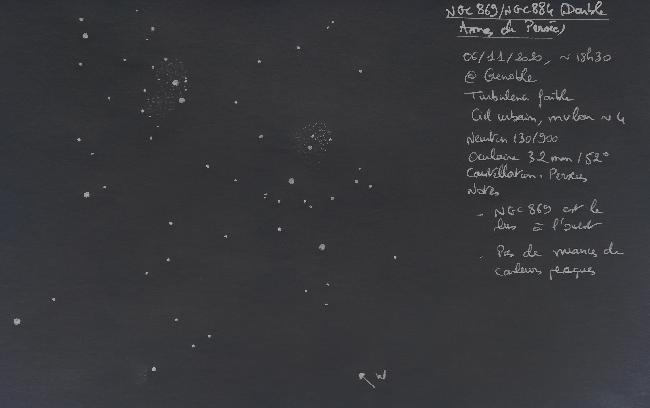 NGC 869/NGC 884 (Double
Amas de Persée)
06/11/2020, ~ 18h30
@ Grenoble
Turbulence faible
Ciel urbain, mvlon ~ 4
Newton 130/900
Oculaire 32 mm / 52°
Constellation : Persée
Notes
- NGC 869 est le
plus à l'ouest
- Pas de nuances de
couleurs perçues
W